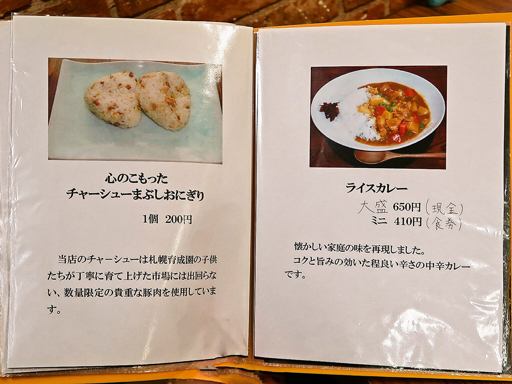 心のこもった
チャーシューまぶしおにぎり
1個 200円
当店のチャーシューは札幌育成園の子供
たちが丁寧に育て上げた市場には出回らな
い、数量限定の貴重な豚肉を使用していま
す。
ライスカレー
大盛 650円(現金)
ミニ 410円(食券)
懐かしい家庭の味を再現しました。
コクと旨みの効いた程良い辛さの中辛カレー
です。